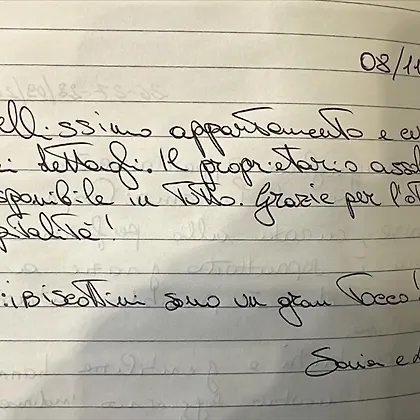 08/11
ellissimo appartamento e cu
i dettagli. Il proprietario assol
sponibile in tutto. Grazie per l'o
pitalità!
: i Biscottini sono un gran tocco!
e